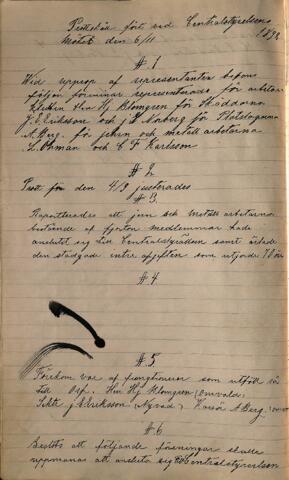 Protokoll fört vid Centralstyrelsens
Mötet den 6/11 1892
# 1
Vid upprop af representanter befans
följan föreninar representerade för arbetar
klubben Hrn Hj Blomgren för Skaddarna
J. E. Eriksson och J. Norberg för
A. Berg. för jehrn och metall arbetarna
L. Öhman och C F Karlsson
# 2
Prot från den 4/9 justerades
# 3
Raporterades att jern och metall arbetarna
bestående af fjorton medlemmar hade
anslutit sig till Centralstyrelsen samt ärlade
den stadgade intre avgiften som utjorde 70 öre
# 4
# 5
Förekom val af funqtionerer som utföll så
till Orf. Hrn Hj Blomgren (omvald)
Sekr. J E Eriksson (Nyvald) Kasör A Berg (omv
# 6
Beslöts att följande föreningar skulle
uppmanas att ansluta sig till Centralstyrelsen